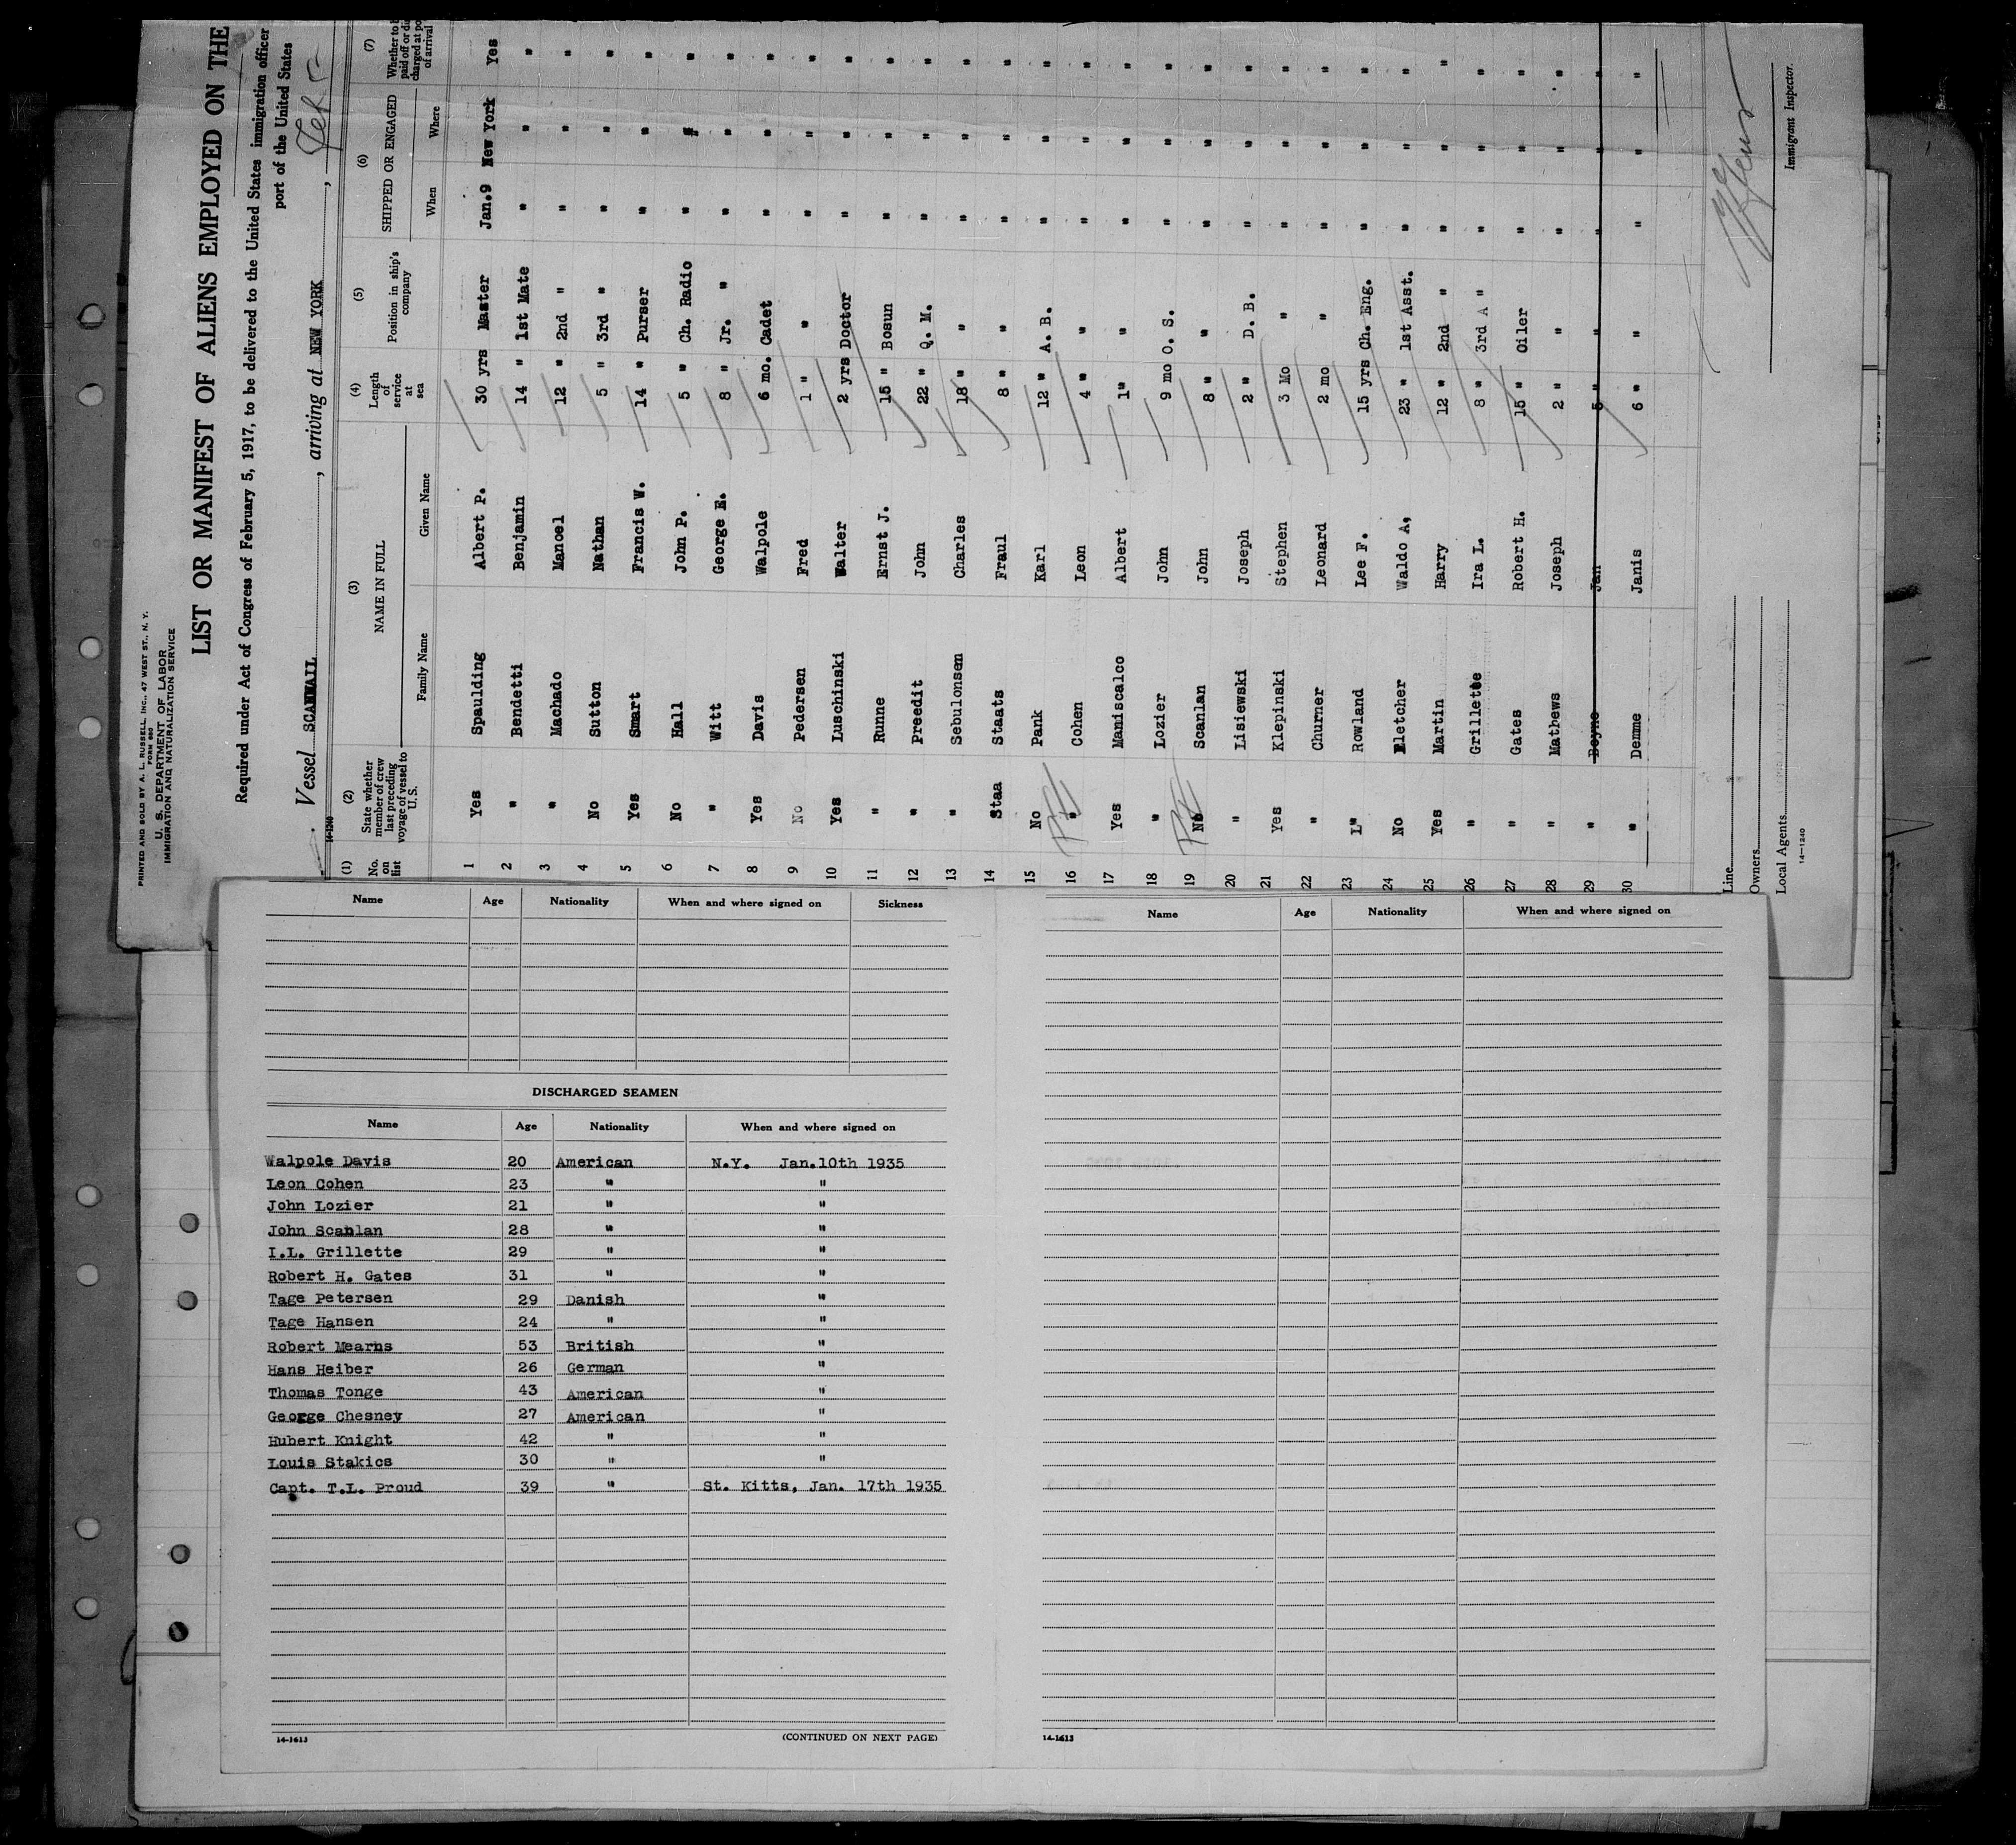 PRINTED AND SOLD BY A. L. RUSSELL, INC., 47 WEST ST., N. Y.
FORM 680
U. S. DEPARTMENT OF LABOR
IMMIGRATION AND NATURALIZATION SERVICE
LIST OR MANIFEST OF ALIENS EMPLOYED ON THE
Required under Act of Congress of February 5, 1917, to be delivered to the United States immigration officer
port of the United States
Vessel SCANMAIL, arriving at NEW YORK, Feb 5
14-1240
(1) (2) (3) (4) (5) (6) (7)
No. on list
State whether member of crew last preceding voyage of vessel to U. S.
NAME IN FULL
Family Name Given Name
Length of service at sea
Position in ship's company
SHIPPED OR ENGAGED
When Where
of arrival
1 Yes Spaulding Albert P. 30 yrs Master Jan.9 New York Yes
2 " Bendetti Benjamin 14 " 1st Mate " " "
3 " Machado Manoel 12 " 2nd " " " "
4 No Sutton Nathan 5 " 3rd " " " "
5 Yes Smart Francis W. 14 " Purser " " "
6 No Hall John P. 5 " Ch. Radio " " "
7 " Witt George E. 8 " Jr. " " " "
8 Yes Davis Walpole 6 mo. Cadet " " "
9 No Pedersen Fred 1 " " " " "
10 Yes Luschinski Walter 2 yrs Doctor " " "
11 " Runne Ernst J. 15 " Bosun " " "
12 " Preedit John 22 " Q. M. " " "
13 " Sebulonsen Charles 18 " " " " "
14 Staa Staats Fraul 8 " " " " "
15 No Pank Karl 12 " A. B. " " "
16 " Cohen Leon 4 " " " " "
17 Yes Maniscalco Albert 1" " " " "
18 " Lozier John 9 mo O. S. " " "
19 No Scanlan John 8 " " " " "
20 " Lisiewski Joseph 2 " D. B. " " "
21 Yes Klepinski Stephen 3 Mo " " " "
22 " Churner Leonard 2 mo " " " "
23 L" Rowland Lee F. 15 yrs Ch. Eng. " " "
24 No Fletcher Waldo A, 23 " 1st Asst. " " "
25 Yes Martin Harry 12 " 2nd " " " "
26 " Grillette Ira L. 8 " 3rd A " " " "
27 " Gates Robert H. 15 " Oiler " " "
28 " Mathews Joseph 2 " " " " "
29 " Boyne Jan 5 " " " " "
30 " Demme Janis 6 " " " " "
Line
Owners
Local Agents
14-1240
Immigrant Inspector.
Name Age Nationality When and where signed on Sickness
DISCHARGED SEAMEN
Name Age Nationality When and where signed on
Walpole Davis 20 American N.Y. Jan.10th 1935
Leon Cohen 23 " "
John Lozier 21 " "
John Scanlan 28 " "
I.L. Grillette 29 " "
Robert H. Gates 31 " "
Tage Petersen 29 Danish "
Tage Hansen 24 " "
Robert Mearns 53 British "
Hans Heiber 26 German "
Thomas Tonge 43 American "
George Chesney 27 American "
Hubert Knight 42 " "
Louis Stakics 30 " "
Capt. T.L. Proud 39 " St. Kitts, Jan. 17th 1935
14-1613
(CONTINUED ON NEXT PAGE)
Name Age Nationality When and where signed on
14-1613